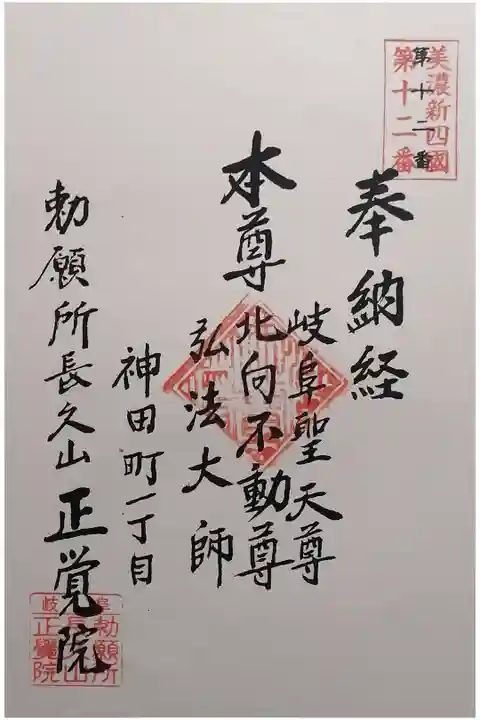 美濃新四國
第十二番
第十二番
奉納経
岐阜聖天尊
本尊
北向不動尊
弘法大師
神田町一丁目
勅願所長久山正覚院
勅願所
長久山
岐阜
正覺院